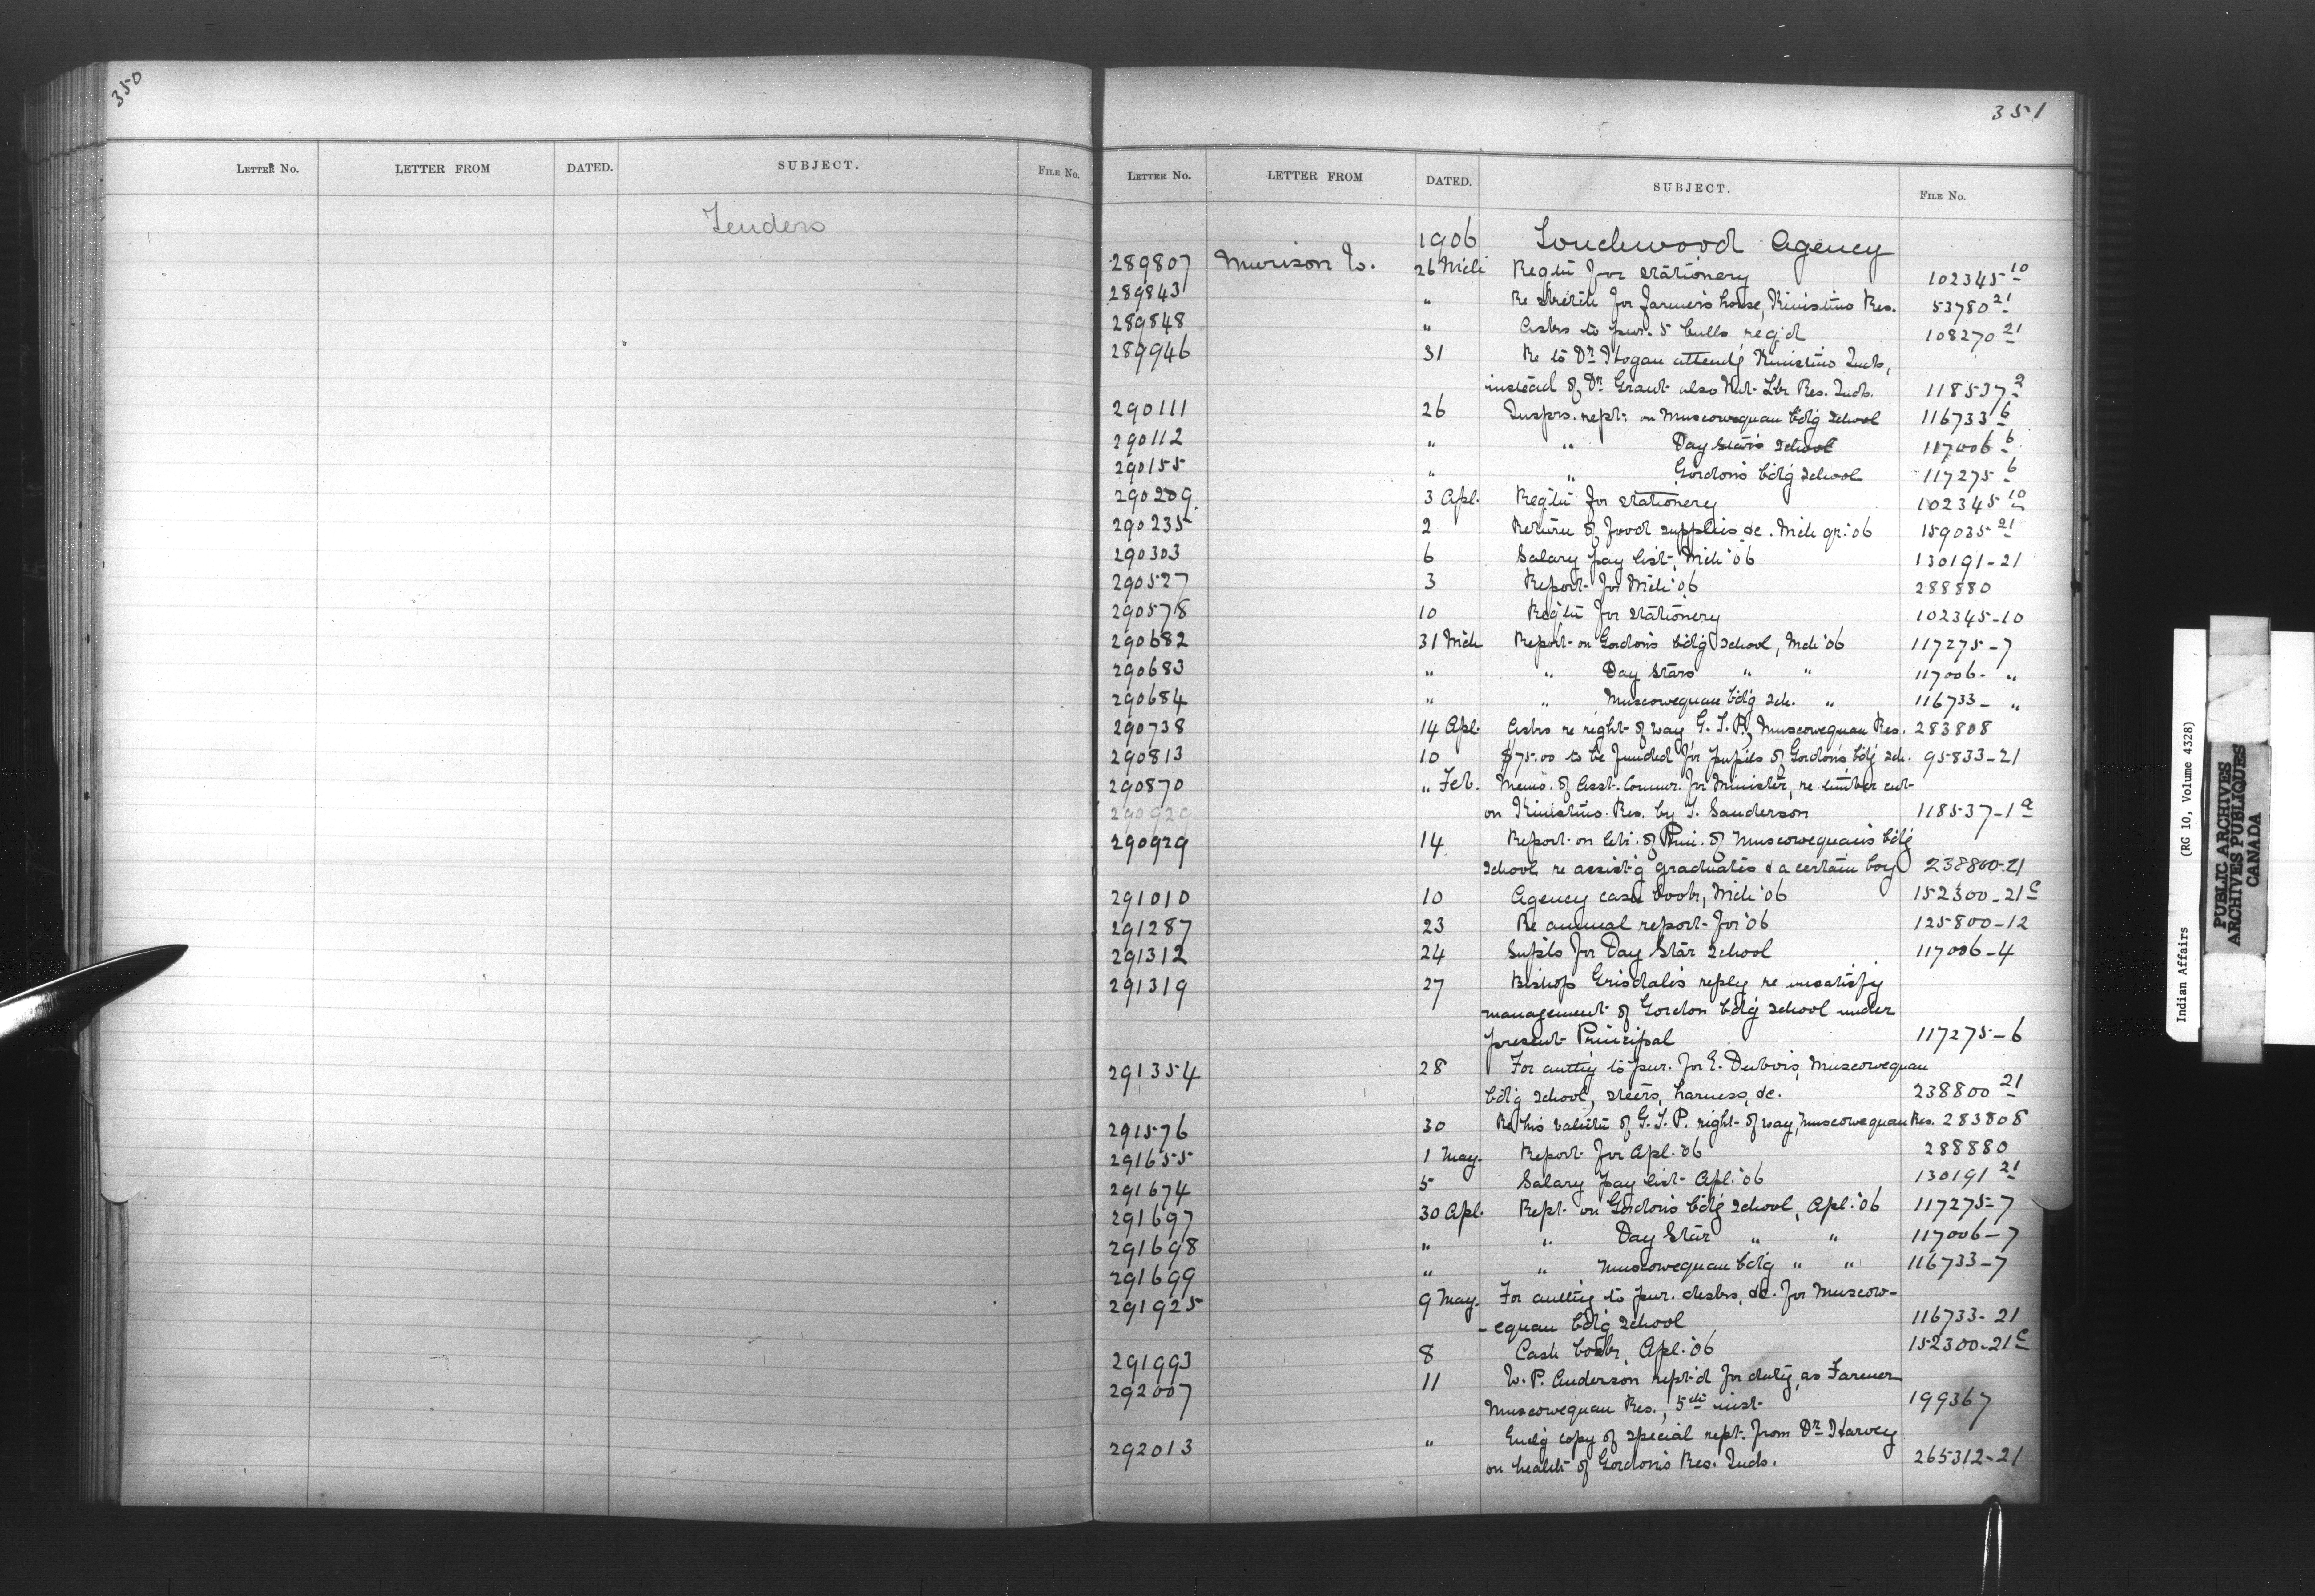 350
LETTER No. LETTER FROM DATED. SUBJECT. FILE No.
Tenders
351
LETTER No. LETTER FROM DATED. SUBJECT. FILE No.
1906 Touchwood Agency
289807 Murison W. 26 Mch Reqtn for stationery 102345 10
289843 " Re sketch for farmer's house, Kinistino Res. 53780 21
289848 " Asks to pur. 5 bulls req'd 108270 21
289946 31 Re to Dr Hogan attendg Kinistino Inds,
instead of Dr Grant also Nut Lke Res. Inds. 118537 2
290111 26 Insprs. rept. on Muscowequan bdg school 116733 6
290112 " " Day Star's School 117006 6
290155 " " Gordon's bdg School 117275 6
290209 3 Apl. Reqtn for stationery 102345 10
290235 2 Return of food supplies &c. Mch qr. '06 159035 21
290303 6 Salary pay list, Mch '06 130191-21
290527 3 Report for Mch '06 288880
290578 10 Reqtn for stationery 102345-10
290682 31 Mch Report on Gordon's bdg School, Mch '06 117275-7
290683 " " Day Stars " " 117006- "
290684 " " Muscowequan bdg Sch. " 116733- "
290738 14 Apl. Asks re right of way G.T.P., Muscowequan Res. 283808
290813 10 $75.00 to be funded for pupils of Gordon's bdg sch. 95833-21
290870 " Feb. Memo. of Asst. Commr. for Minister, re timber cut
290929 on Kinistino Res. by T. Sanderson 118537-1 a
290929 14 Report on letr. of Prin. of Muscowequan's bdg
School re assist'g graduates & a certain boy 238800-21
291010 10 Agency cash book, Mch '06 152300-21 c
291287 23 Re annual report for '06 125800-12
291312 24 Supls for Day Star School 117006-4
291319 27 Bishop Grisdale's reply re unsatisfy
management of Gordon bdg School under
present Principal 117275-6
291354 28 For authy to pur. for E. Dubois, Muscowequan
bdg School, steers, harness, &c. 238800 21
291576 30 Re his valutn of G.T.P. right of way, Muscowequan Res. 283808
291655 1 May. Report for Apl. '06 288880
291674 5 Salary pay list Apl. '06 130191 21
291697 30 Apl. Rept. on Gordon's bdg School, Apl. '06 117275-7
291698 " " Day Star " " 117006-7
291699 " " Muscowequan bdg " " 116733-7
291925 9 May. For authy to pur. desks, &c. for Muscow-
-equan bdg School 116733-21
291993 8 Cash book, Apl. '06 152300-21 c
292007 11 W. P. Anderson rept'd for duty, as Farmer
Muscowequan Res., 5th inst 199367
292013 " Encl'g copy of special rept. from Dr Harvey
on health of Gordon's Res. Inds. 265312-21
Indian Affairs (RG 10, Volume 4328)
PUBLIC ARCHIVES
ARCHIVES PUBLIQUES
CANADA